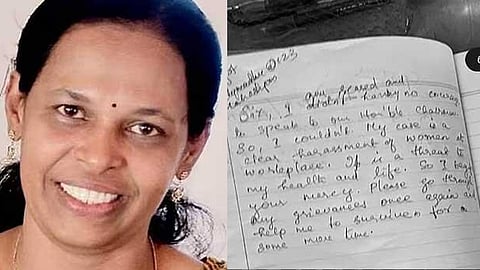 Sir, I am scared and
having no courage
to speak to our Hon'ble Chairman.
So, I couldn't. My case is a
clear harassment of women at
workplace. It is a threat to
my health and life. So I beg
your mercy. Please go through
my grievances once again and
help me to survive for a
some more time.